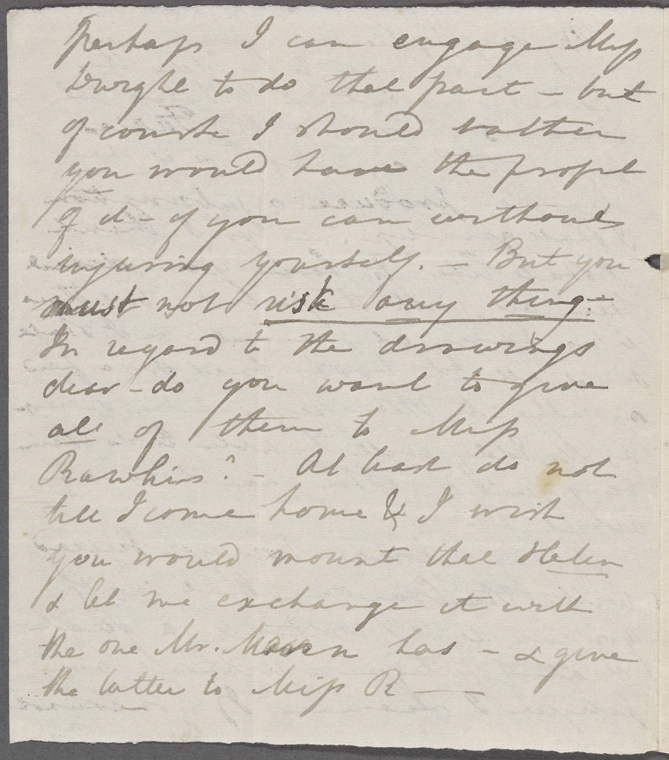 Perhaps I can engage Miss
Dwight to do that part - but
of course I should rather
you would have the profit
of it - if you can without
injuring yourself. - But you
must not risk any thing -
In regard to the drawings
dear - do you want to give
all of them to Miss
Rawlins? - At least do not
till I come home & I wish
you would mount that Helen
& let me exchange it with
the one Mr. Mann has - & give
the latter to Miss R - -